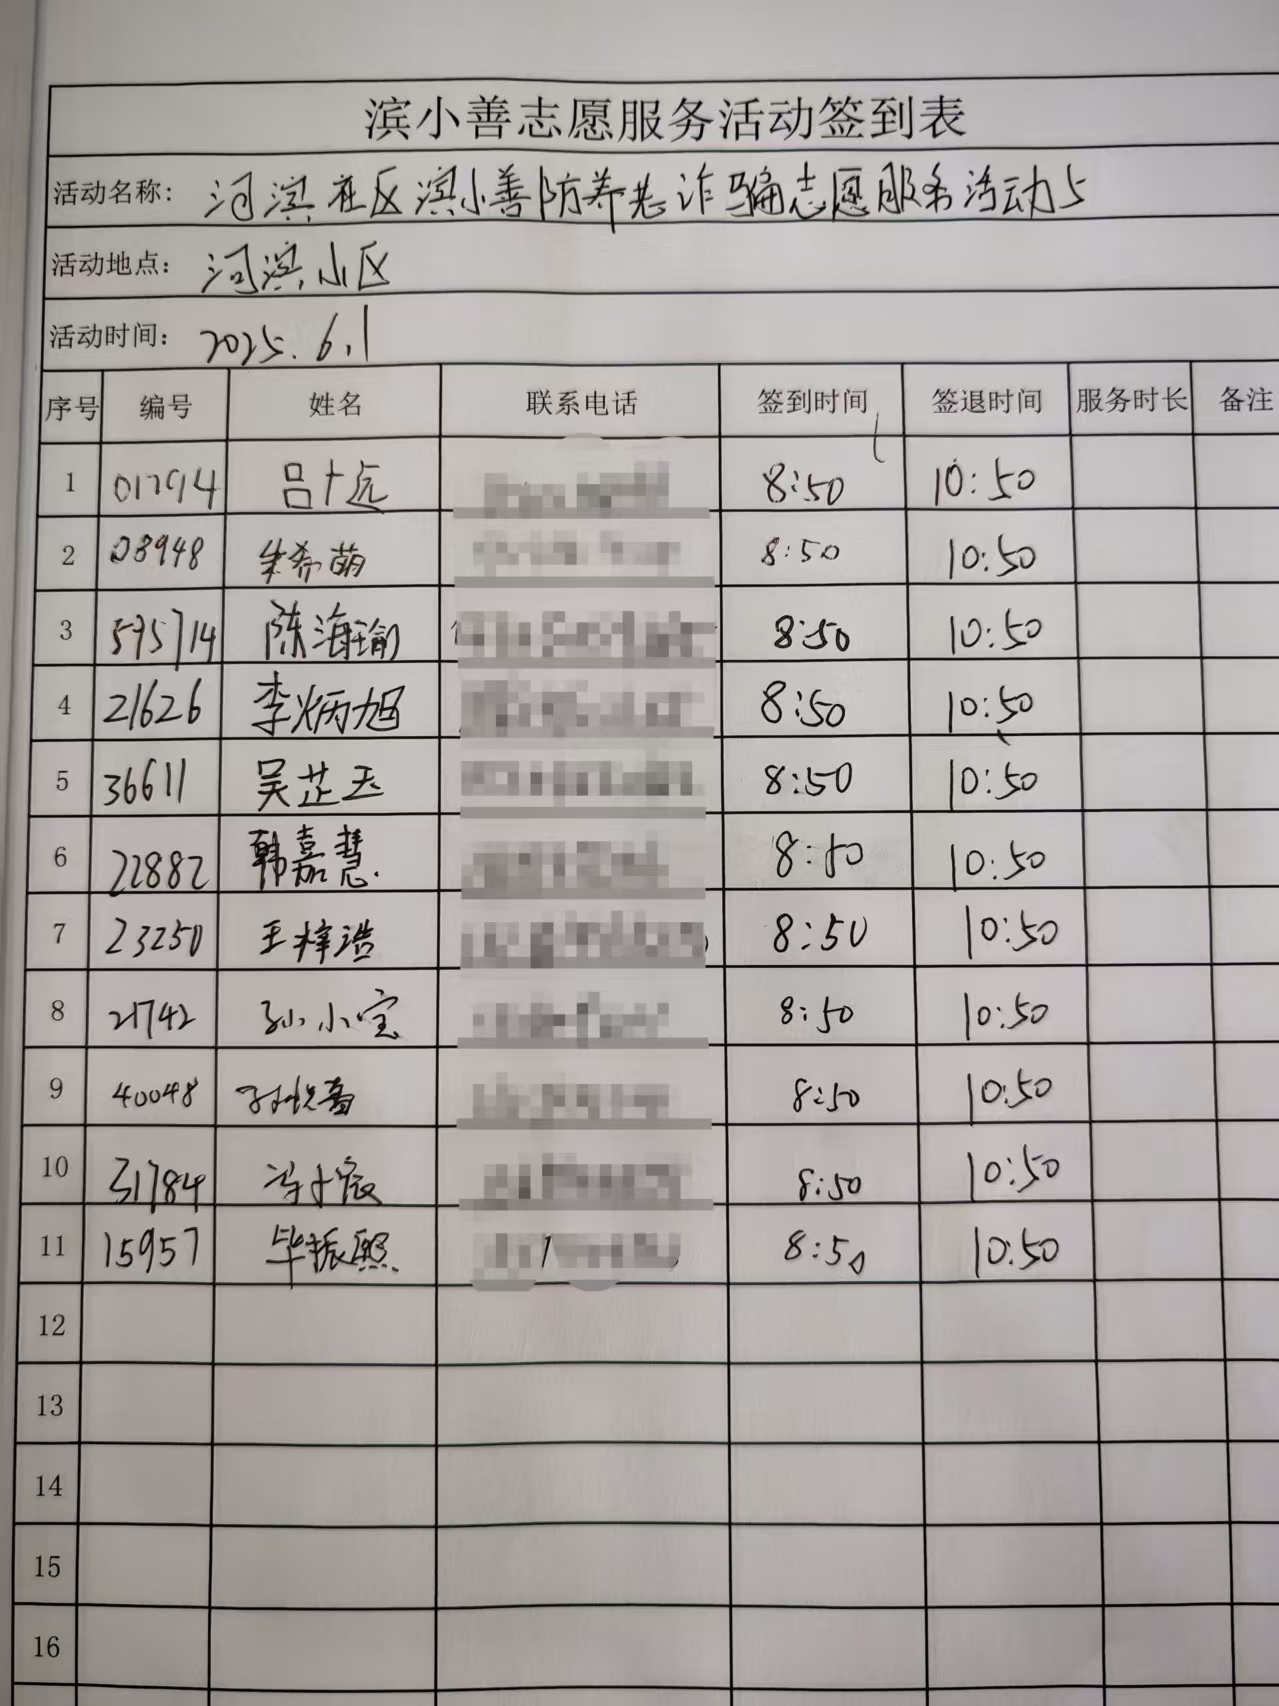 滨小善志愿服务活动签到表
活动名称: 河滨社区滨小善防养老诈骗志愿服务活动5
活动地点: 河滨小区
活动时间: 2025.6.1
序号 编号 姓名 联系电话 签到时间 签退时间 服务时长 备注
1 01794 吕十远 8:50 10:50
2 03948 朱希萌 8:50 10:50
3 595714 陈海瑜 8:50 10:50
4 21626 李炳旭 8:50 10:50
5 36611 吴芷玉 8:50 10:50
6 22882 韩嘉慧 8:50 10:50
7 23250 王梓浩 8:50 10:50
8 21742 孙小宝 8:50 10:50
9 40048 8:50 10:50
10 31784 8:50 10:50
11 15957 毕振熙 8:50 10:50
12
13
14
15
16